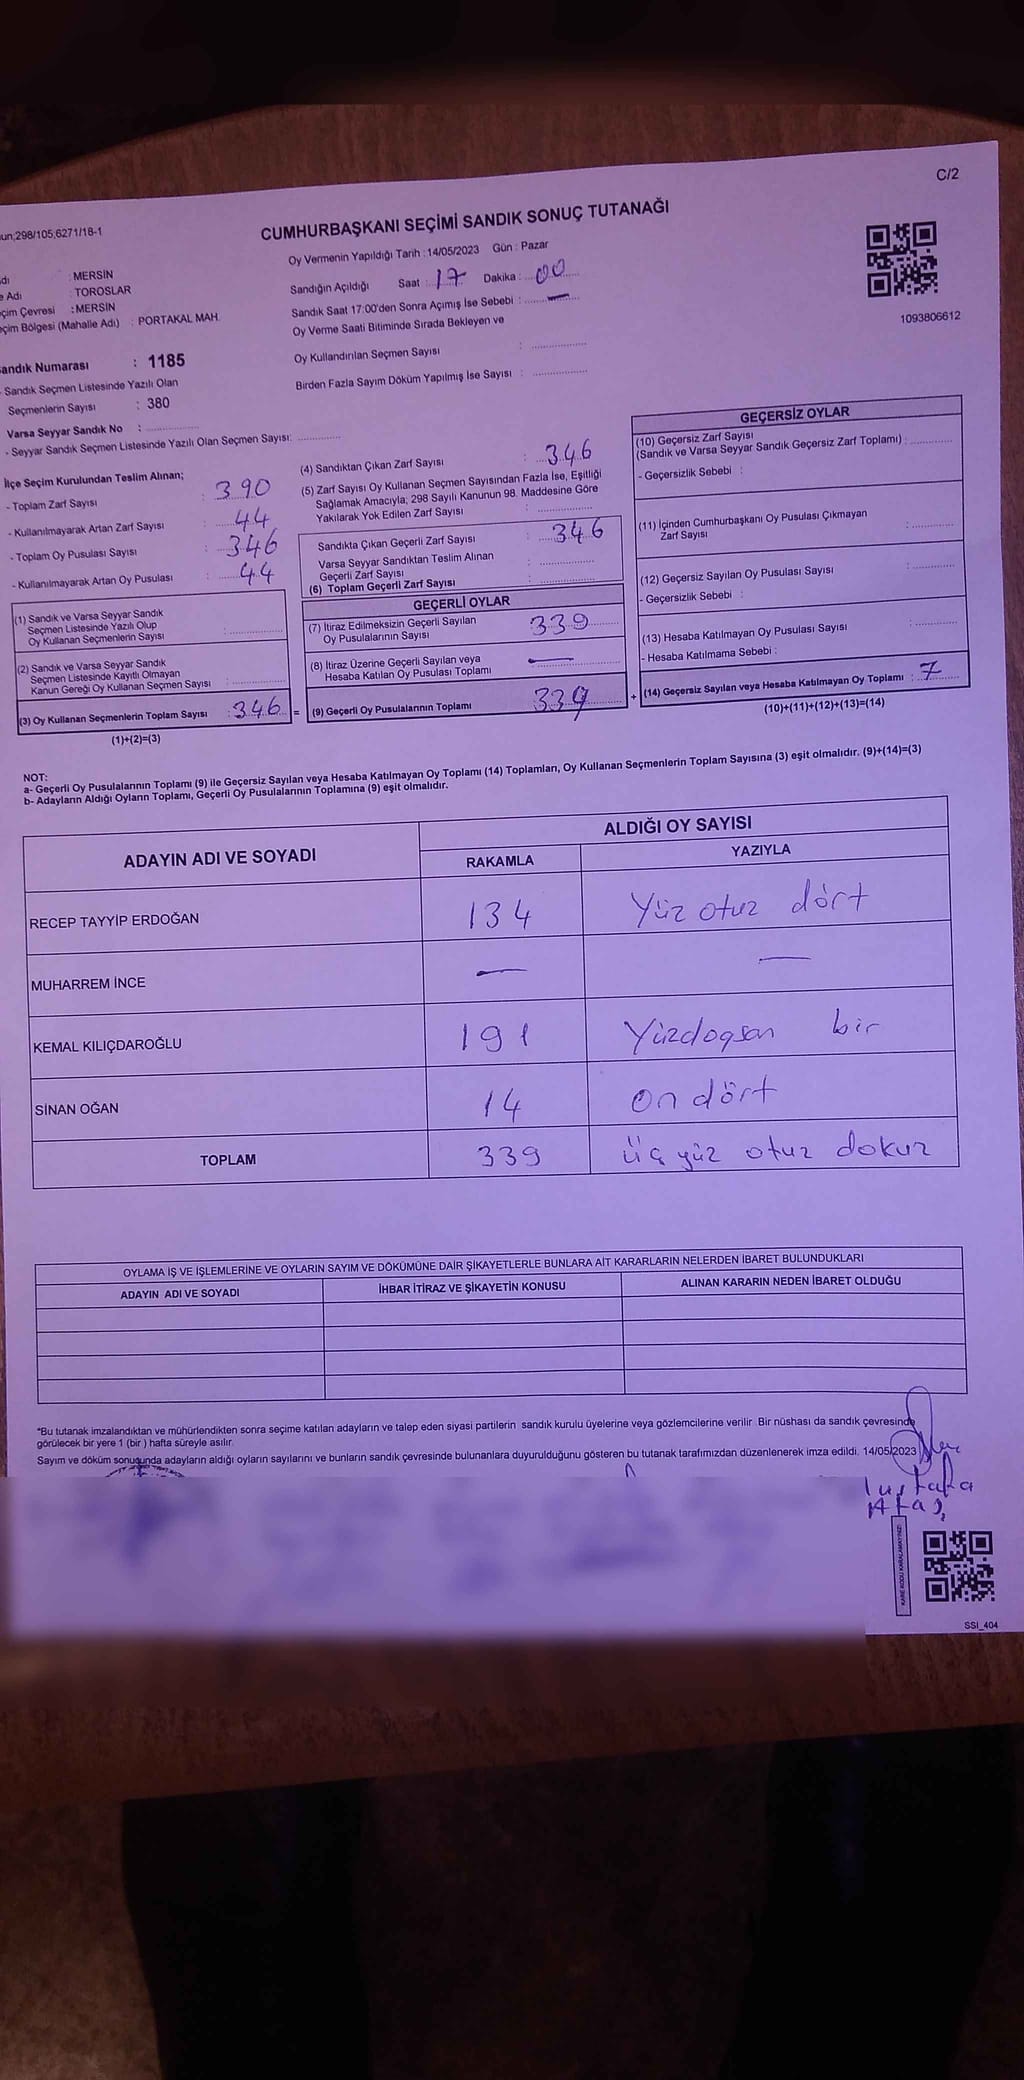 C/2
un;298/105;6271/18-1
CUMHURBAŞKANI SEÇİMİ SANDIK SONUÇ TUTANAĞI
Oy Vermenin Yapıldığı Tarih : 14/05/2023 Gün : Pazar
dı : MERSİN
e Adı : TOROSLAR
çim Çevresi : MERSİN
çim Bölgesi (Mahalle Adı) : PORTAKAL MAH.
Sandığın Açıldığı Saat : 17 Dakika : 00
Sandık Saat 17:00'den Sonra Açımış İse Sebebi : —
Oy Verme Saati Bitiminde Sırada Bekleyen ve
Oy Kullandırılan Seçmen Sayısı :
Birden Fazla Sayım Döküm Yapılmış İse Sayısı :
1093806612
andık Numarası : 1185
- Sandık Seçmen Listesinde Yazılı Olan
Seçmenlerin Sayısı : 380
Varsa Seyyar Sandık No :
- Seyyar Sandık Seçmen Listesinde Yazılı Olan Seçmen Sayısı:
İlçe Seçim Kurulundan Teslim Alınan;
- Toplam Zarf Sayısı : 390
- Kullanılmayarak Artan Zarf Sayısı : 44
- Toplam Oy Pusulası Sayısı : 346
- Kullanılmayarak Artan Oy Pusulası : 44
(1) Sandık ve Varsa Seyyar Sandık
Seçmen Listesinde Yazılı Olup
Oy Kullanan Seçmenlerin Sayısı :
(2) Sandık ve Varsa Seyyar Sandık
Seçmen Listesinde Kayıtlı Olmayan
Kanun Gereği Oy Kullanan Seçmen Sayısı :
(3) Oy Kullanan Seçmenlerin Toplam Sayısı : 346 =
(1)+(2)=(3)
(4) Sandıktan Çıkan Zarf Sayısı : 346
(5) Zarf Sayısı Oy Kullanan Seçmen Sayısından Fazla İse, Eşitliği
Sağlamak Amacıyla; 298 Sayılı Kanunun 98. Maddesine Göre
Yakılarak Yok Edilen Zarf Sayısı :
Sandıkta Çıkan Geçerli Zarf Sayısı : 346
Varsa Seyyar Sandıktan Teslim Alınan
Geçerli Zarf Sayısı :
(6) Toplam Geçerli Zarf Sayısı :
GEÇERLİ OYLAR
(7) İtiraz Edilmeksizin Geçerli Sayılan
Oy Pusulalarının Sayısı : 339
(8) İtiraz Üzerine Geçerli Sayılan veya
Hesaba Katılan Oy Pusulası Toplamı : —
(9) Geçerli Oy Pusulalarının Toplamı : 339 +
GEÇERSİZ OYLAR
(10) Geçersiz Zarf Sayısı
(Sandık ve Varsa Seyyar Sandık Geçersiz Zarf Toplamı) :
- Geçersizlik Sebebi :
(11) İçinden Cumhurbaşkanı Oy Pusulası Çıkmayan
Zarf Sayısı :
(12) Geçersiz Sayılan Oy Pusulası Sayısı :
- Geçersizlik Sebebi :
(13) Hesaba Katılmayan Oy Pusulası Sayısı :
- Hesaba Katılmama Sebebi :
(14) Geçersiz Sayılan veya Hesaba Katılmayan Oy Toplamı : 7
(10)+(11)+(12)+(13)=(14)
NOT:
a- Geçerli Oy Pusulalarının Toplamı (9) ile Geçersiz Sayılan veya Hesaba Katılmayan Oy Toplamı (14) Toplamları, Oy Kullanan Seçmenlerin Toplam Sayısına (3) eşit olmalıdır. (9)+(14)=(3)
b- Adayların Aldığı Oyların Toplamı, Geçerli Oy Pusulalarının Toplamına (9) eşit olmalıdır.
ADAYIN ADI VE SOYADI ALDIĞI OY SAYISI
RAKAMLA YAZIYLA
RECEP TAYYİP ERDOĞAN 134 Yüz otuz dört
MUHARREM İNCE — —
KEMAL KILIÇDAROĞLU 191 Yüzdoqsan bir
SİNAN OĞAN 14 On dört
TOPLAM 339 üç yüz otuz dokuz
OYLAMA İŞ VE İŞLEMLERİNE VE OYLARIN SAYIM VE DÖKÜMÜNE DAİR ŞİKAYETLERLE BUNLARA AİT KARARLARIN NELERDEN İBARET BULUNDUKLARI
ADAYIN ADI VE SOYADI İHBAR İTİRAZ VE ŞİKAYETİN KONUSU ALINAN KARARIN NEDEN İBARET OLDUĞU
*Bu tutanak imzalandıktan ve mühürlendikten sonra seçime katılan adayların ve talep eden siyasi partilerin sandık kurulu üyelerine veya gözlemcilerine verilir Bir nüshası da sandık çevresinde
görülecek bir yere 1 (bir ) hafta süreyle asılır.
Sayım ve döküm sonuğunda adayların aldığı oyların sayılarını ve bunların sandık çevresinde bulunanlara duyurulduğunu gösteren bu tutanak tarafımızdan düzenlenerek imza edildi. 14/05/2023
ustafa
Ataş
KARE KODU KARALAMAYINIZ!
SSI_404